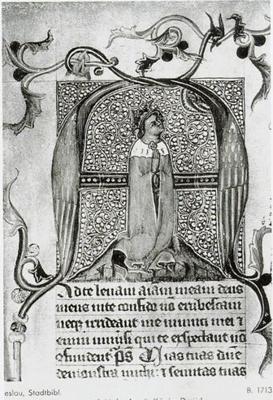 Ad te levavi aiam meam deus
meus in te confido nō erubescam
neqȝ irrideant me inimici mei
enim universi qui te expectant nō
cōfundent Ps Vias tuas dūe
demonstra michi ⁊ semitas tuas
eslau, Stadtbibl.
B. 1713